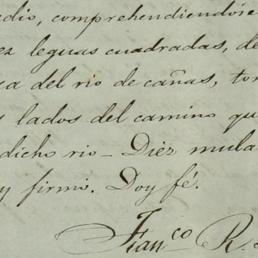 dio, comprehendiéndose
ez leguas cuadradas, de
ca del rio de cañas, tom
s lados del camino qu
dicho rio — Diez mula
y firmó. Doy fé.
Fran.co R.